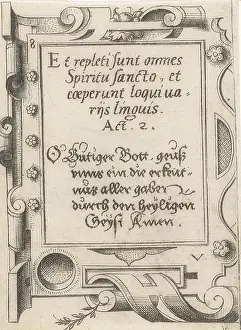 8
Et repleti sunt omnes
Spiritu sancto, et
cœperunt loqui ua-
rijs linguis.
Act. 2.
O Gütiger Bott. geuß
vnns ein die erkent-
nus aller gaben
durch den heyligen
Geyst Amen.
V.